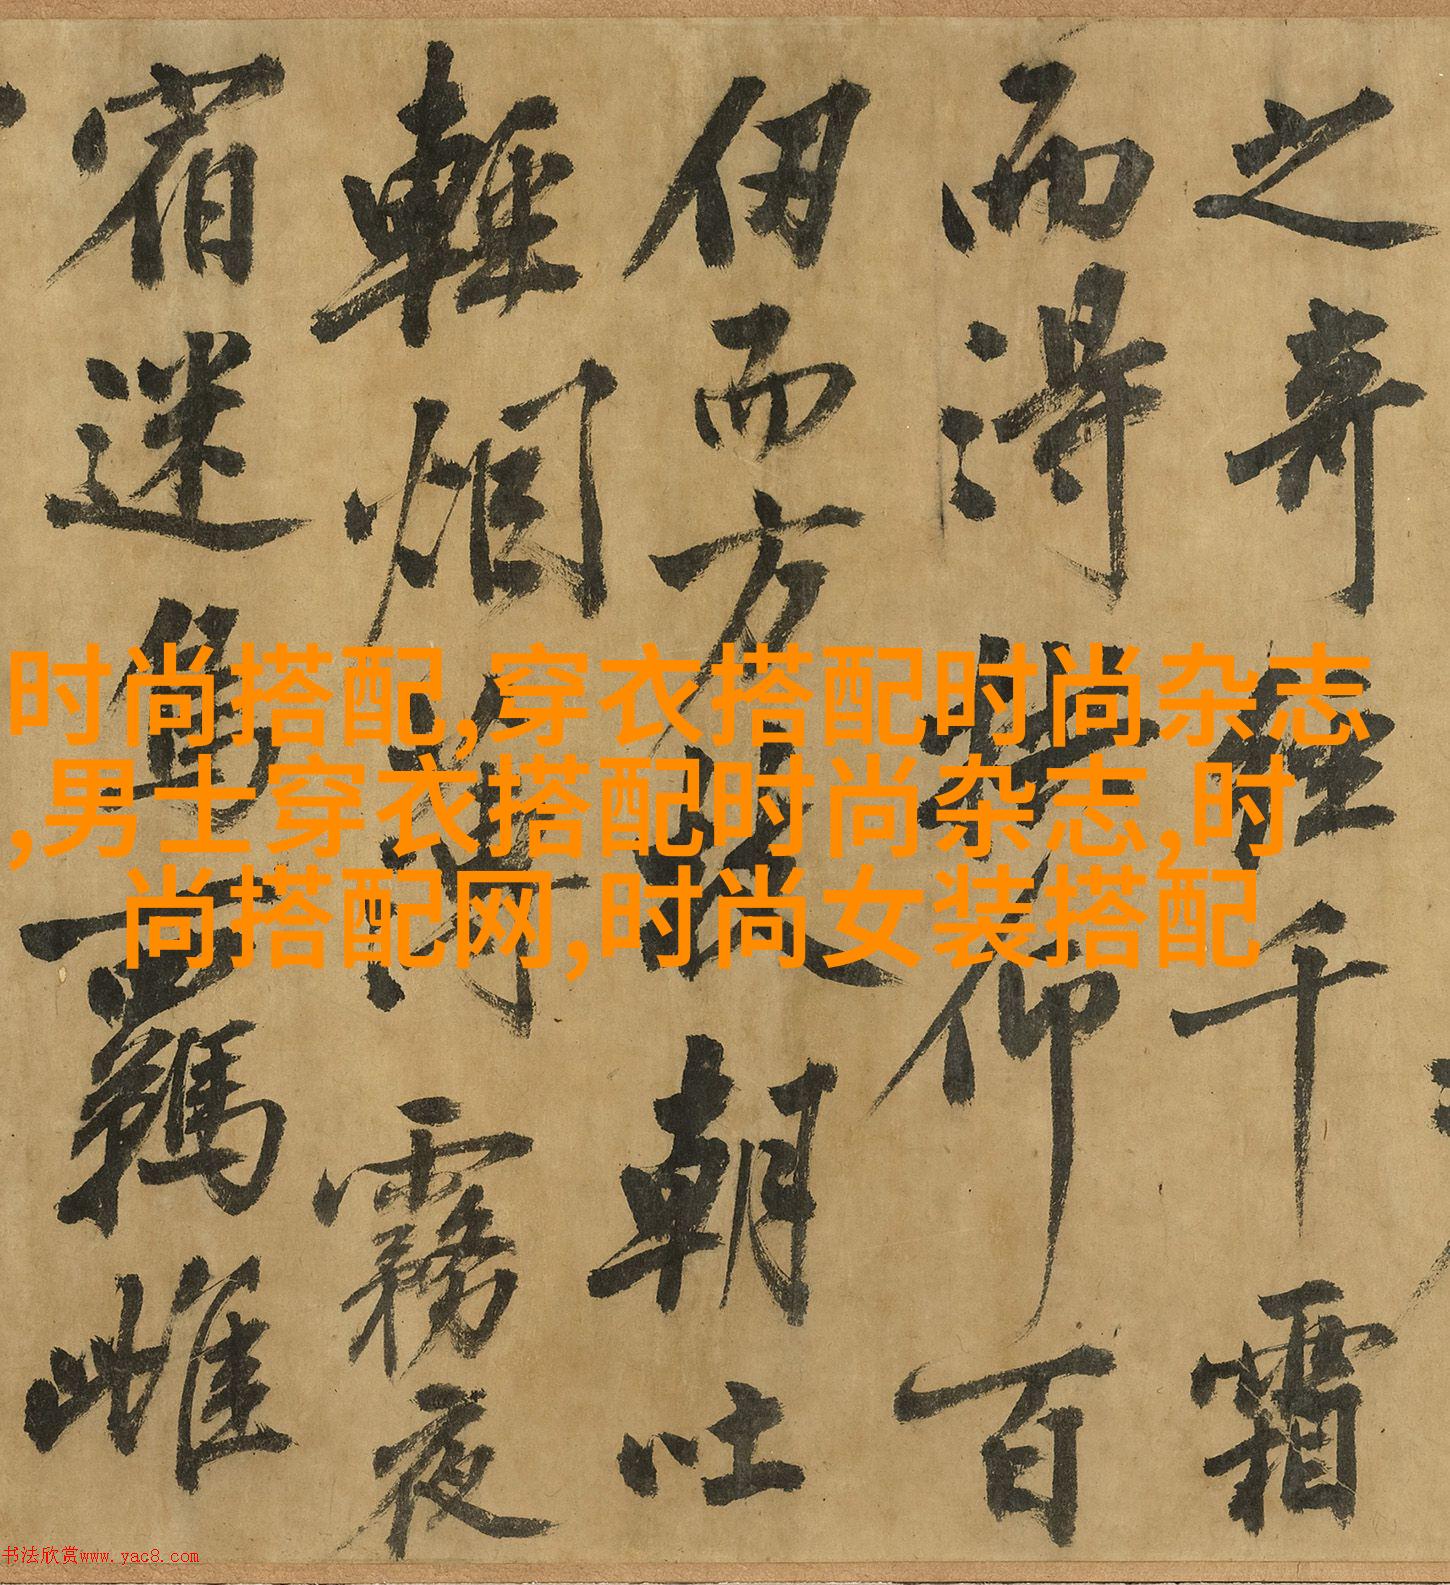 之奇經千霜
而得拱仰百
仞而方枝朝吐
輕烟薄霧夜
宿迷鳥羈雌
时尚搭配,穿衣搭配时尚杂志
,男士穿衣搭配时尚杂志,时
尚搭配网,时尚女装搭配
书法欣赏www.yac8.com